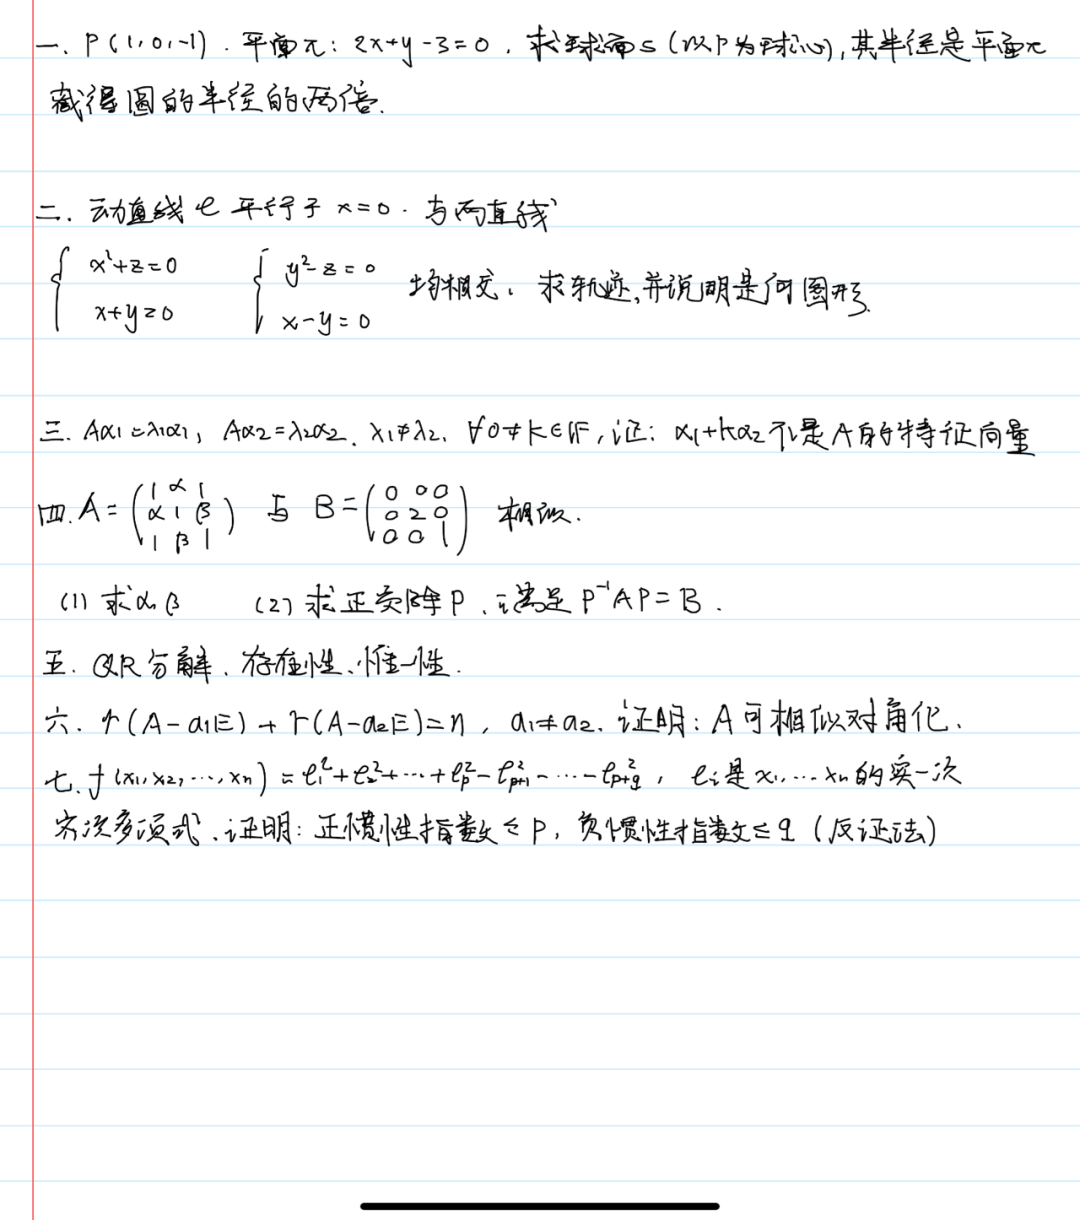 一. P(1,0,-1). 平面π: 2x+y-3=0, 求球面S(以P为球心),其半径是平面π
截得圆的半径的两倍.
二. 动直线l平行于x=0. 与两直线
{ x²+z=0 { y²-z=0 均相交. 求轨迹,并说明是何图形.
x+y=0 x-y=0
三. Aα₁=λ₁α₁, Aα₂=λ₂α₂. λ₁≠λ₂. ∀0≠k∈F, 证: α₁+kα₂不是A的特征向量
四. A=(1 α 1; α 1 β; 1 β 1) 与 B=(0 0 0; 0 2 0; 0 0 1) 相似.
(1) 求α, β (2) 求正交阵P, 满足P⁻¹AP=B.
五. QR分解. 存在性、惟一性.
六. r(A-a₁E)+r(A-a₂E)=n, a₁≠a₂. 证明: A可相似对角化.
七. f(x₁,x₂,…,xn)=l₁²+l₂²+…+lp²-lp+1²-…-lp+q², li是x₁,…xn的实一次
齐次多项式. 证明: 正惯性指数≤p, 负惯性指数≤q (反证法)